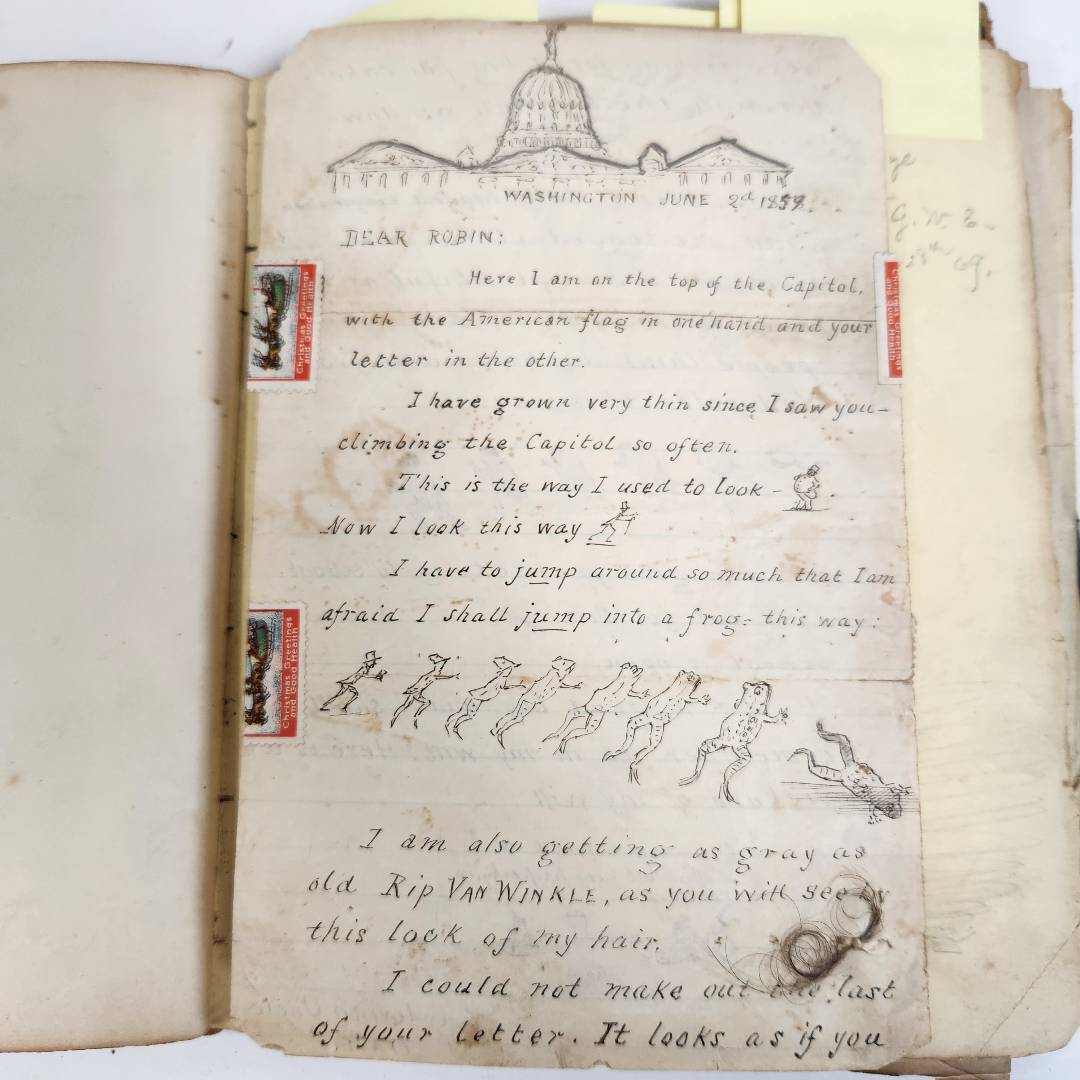 WASHINGTON JUNE 2d 1858.
DEAR ROBIN:
Here I am on the top of the Capitol,
with the American flag in one hand and your
letter in the other.
I have grown very thin since I saw you—
climbing the Capitol so often.
This is the way I used to look -
Now I look this way
I have to jump around so much that I am
afraid I shall jump into a frog= this way:
I am also getting as gray as
old Rip VAN WINKLE, as you will see by
this lock of my hair.
I could not make out the last
of your letter. It looks as if you
Christmas Greetings
and Good Health
Christmas Greetings
and Good Health
Christmas Greetings
and Good Health
ge
G. W. E.
28th 69.